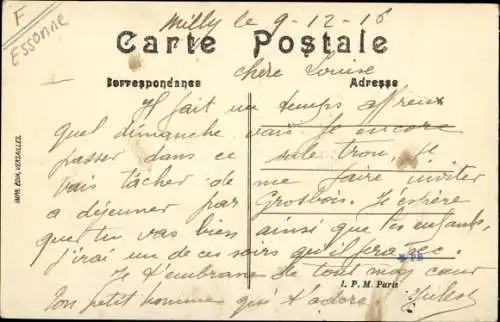 F
Essonne
Milly le 9-12-16
Carte Postale
Correspondance
Adresse
chère Louise
Il fait un temps affreux
quel dimanche vais je encore
passer dans ce sale trou, je
vais tâcher de me faire inviter
a déjeuner par Grosbois. J'espère
que tu vas bien ainsi que tes enfants,
j'irai un de ces soirs qu'il
Je t'embrasse de tout mon cœur
Ton petit homme qui t'adore Jules
I. P. M. Paris
IMP. EDIA, VERSAILLES